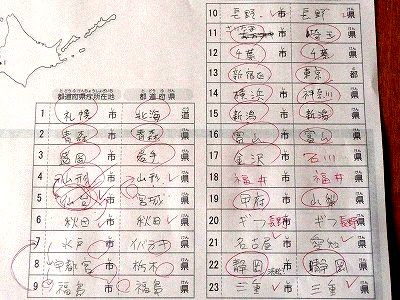 都道府県庁所在地 都道府県
1 札幌 市 北海 道
2 青森 市 青森 県
3 盛岡 市 岩手 県
4 山形 市 山形 県
5 仙台 市 宮城 県
6 秋田 市 秋田 県
7 水戸 市 イバラキ 県
8 宇都宮 市 栃木 県
9 福島 市 福島 県
10 長野 市 長野 県
11 市 埼玉 県
12 千葉 市 千葉 県
13 新宿区 東京 都
14 横浜 市 神奈川 県
15 新潟 市 新潟 県
16 富山 市 富山 県
17 金沢 市 石川 県
18 福井 市 福井 県
19 甲府 市 山梨 県
20 ギフ 市 ギフ 県
21 名古屋 市 愛知 県
22 静岡 市 静岡 県
23 三重 市 三重 県